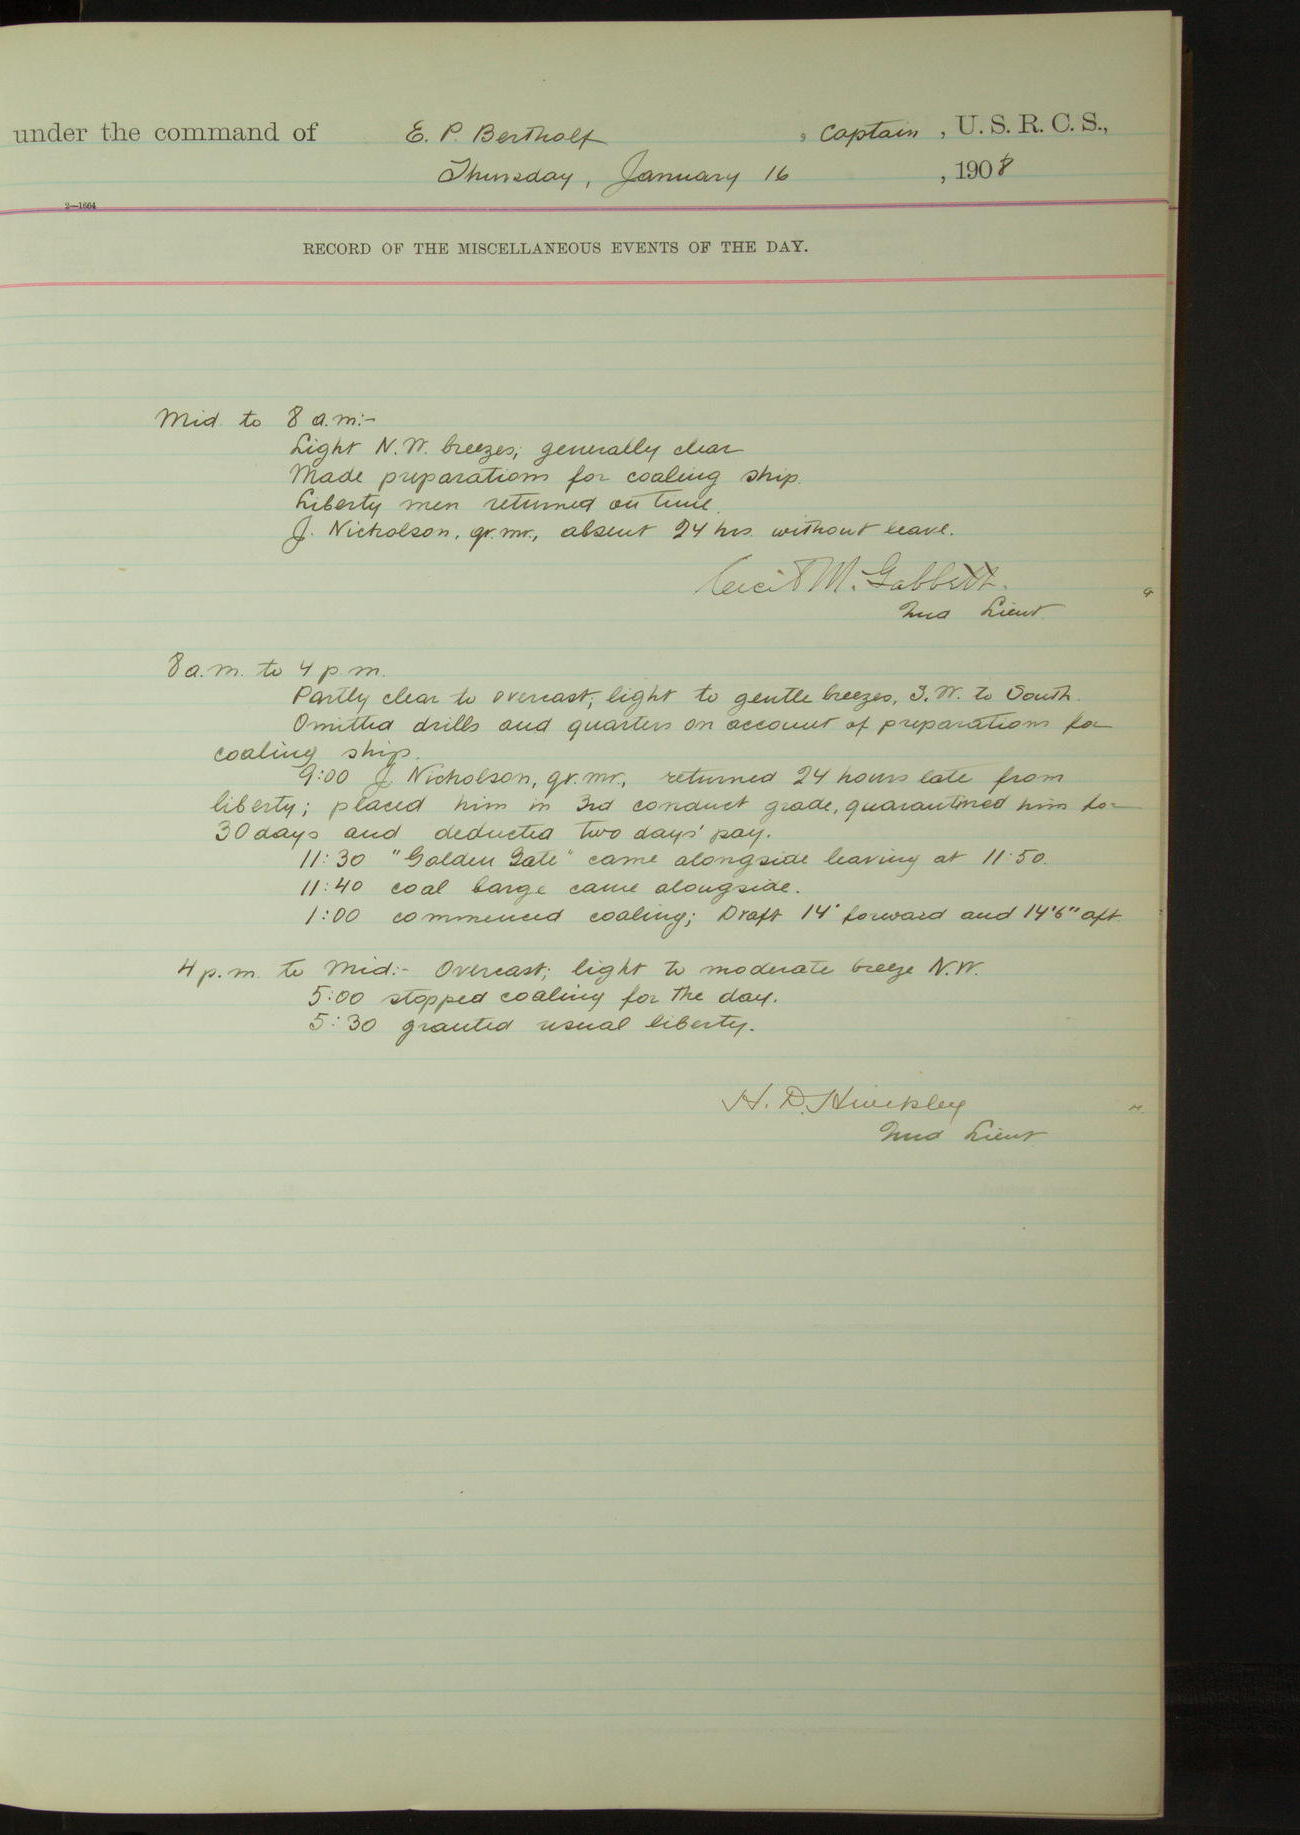 under the command of E. P. Bertholf, Captain, U. S. R. C. S.,
Thursday, January 16, 1908
2—1664
RECORD OF THE MISCELLANEOUS EVENTS OF THE DAY.
Mid to 8 a.m:-
Light N.W. breezes; generally clear
Made preparations for coaling ship.
Liberty men returned on time.
J. Nicholson, qr. mr., absent 24 hrs. without leave.
Cecil M. Gabbett.
2nd Lieut.
8 a.m. to 4 p.m.
Partly clear to overcast; light to gentle breezes, S.W. to South.
Omitted drills and quarters on account of preparations for
coaling ship.
9:00 J. Nicholson, qr. mr., returned 24 hours late from
liberty; placed him in 3rd conduct grade, quarantined him for
30 days and deducted two days' pay.
11:30 "Golden Gate" came alongside leaving at 11:50.
11:40 coal barge came alongside.
1:00 commenced coaling; Draft 14' forward and 14'6" aft.
4 p.m. to Mid:- Overcast; light to moderate breeze N.W.
5:00 stopped coaling for the day.
5:30 granted usual liberty.
H. D. Hinckley
2nd Lieut.